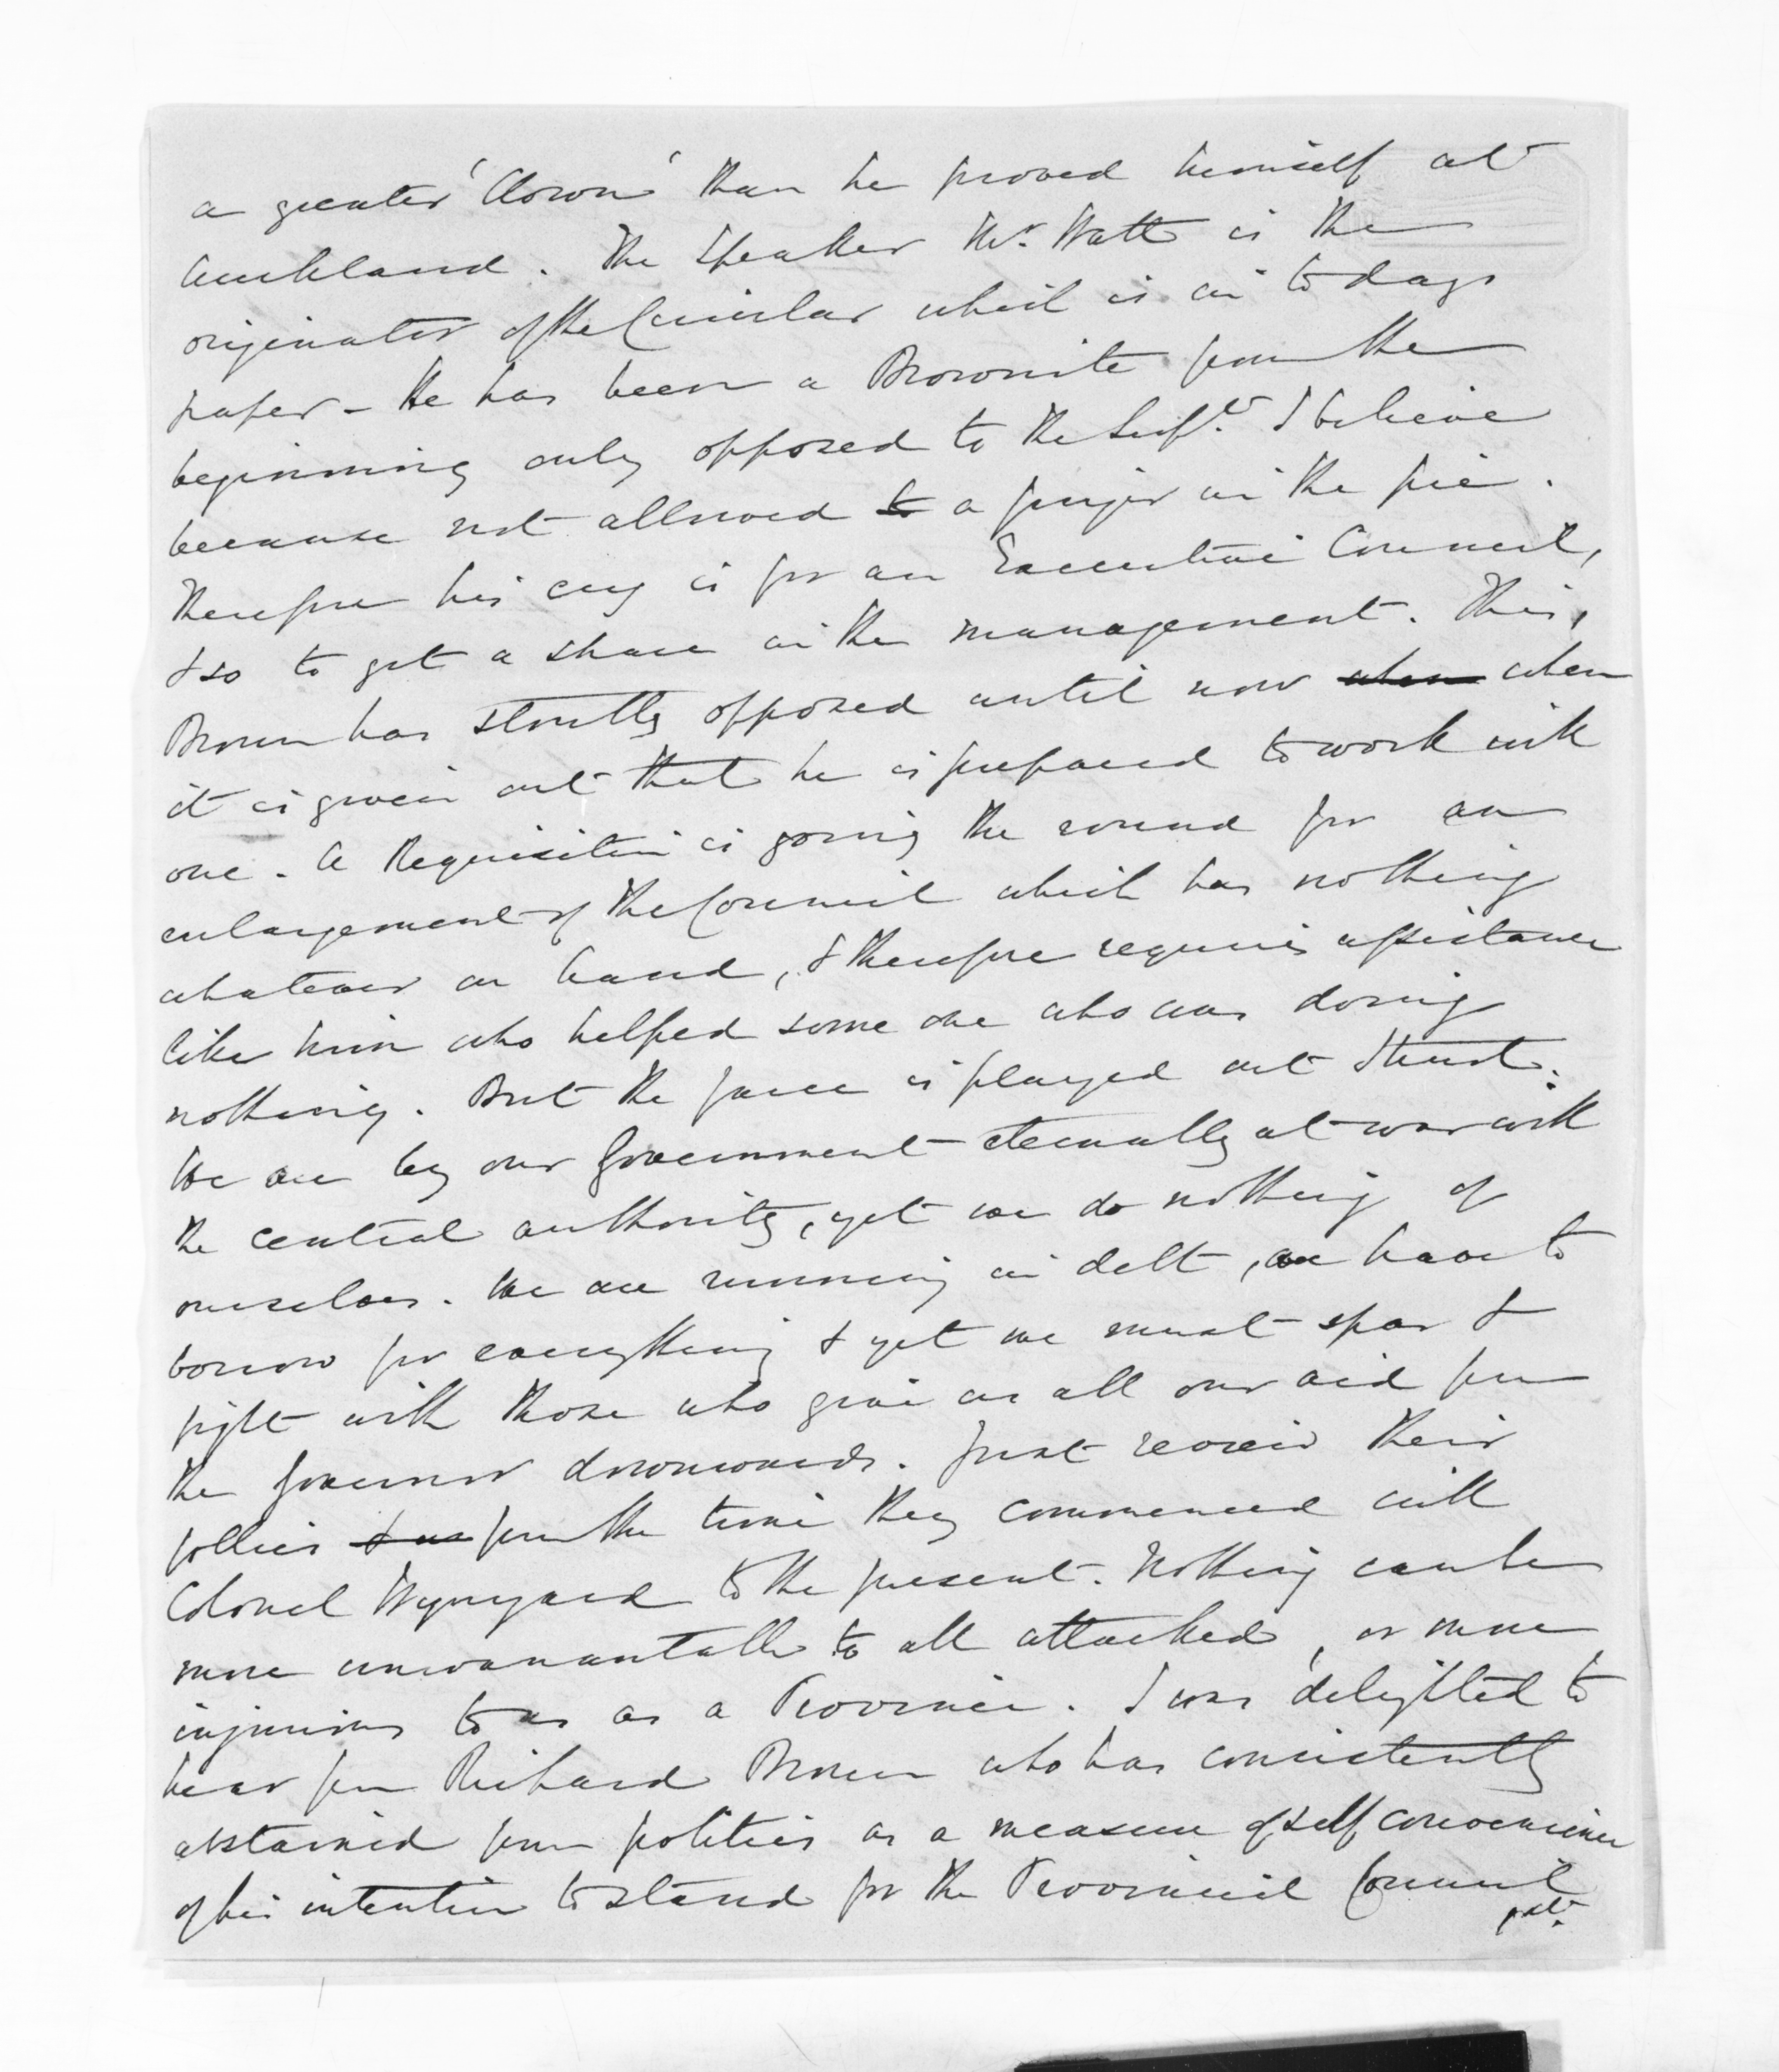 a greater 'Clown' than he proved himself at
Auckland. The Speaker Mr. Watt is the
originator of the Circular which is in to days
paper - He has been a Brownite from the
beginning only opposed to the Supt. I believe
because not allowed to a finger in the pie.
Therefore his cry is for an Executive Council,
& so to get a share in the management. This,
Brown has stoutly opposed until now when when
it is given out that he is prepared to work with
one. A Requisition is going the round for an
enlargement of the Council which has nothing
whatever on hand, & therefore requires assistance
like him who helped some one who was doing
nothing. But the farce is played out I trust.
We are by our Government eternally at war with
the central authority, yet we do nothing of
ourselves. We are running in debt, we have to
borrow for everything & yet we must spar &
fight with those who give us all our aid from
the Governor downwards. Just review their
follies & from the time they commenced with
Colonel Wynyard to the present. Nothing can be
more unwarrantable to all attacked, or more
injurious to us as a Province. I was delighted to
hear from Richard Brown who has consistently
abstained from politics as a measure of self convenience
of his intention to stand for the Provincial Council